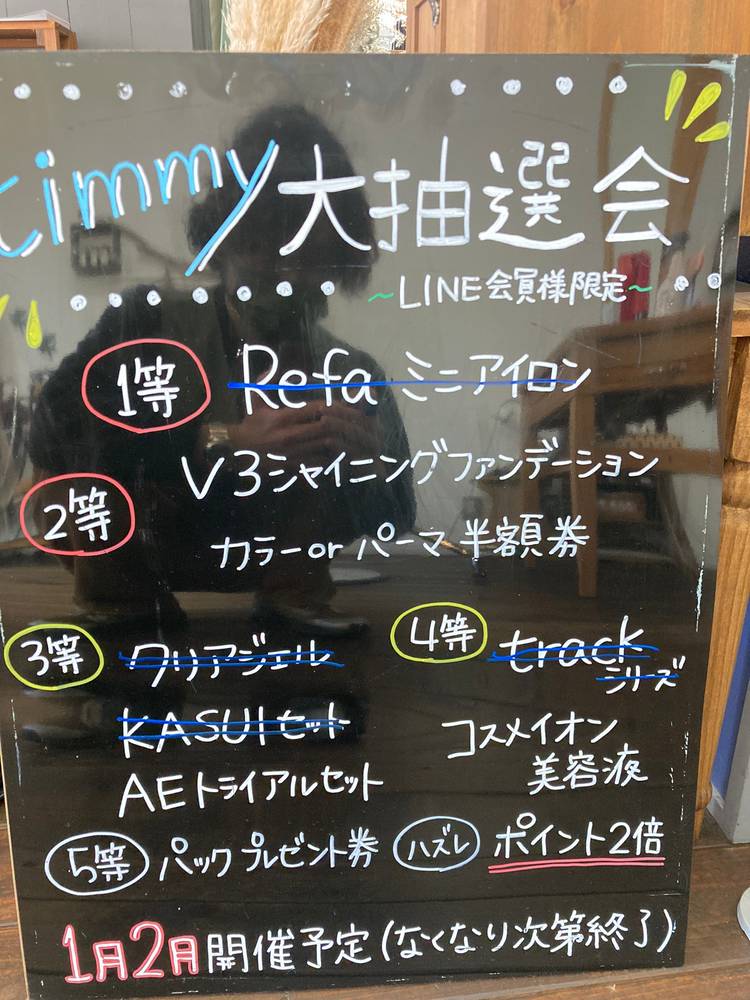 timmy大抽選会
~LINE会員様限定~
1等 Refa ミニアイロン
V3シャイニングファンデーション
2等
カラーorパーマ半額券
3等 クリアジェル
KASUIセット
AEトライアルセット
4等 track
シリーズ
コスメイオン
美容液
5等 パックプレゼント券
ハズレ ポイント2倍
1月2月開催予定(なくなり次第終了)